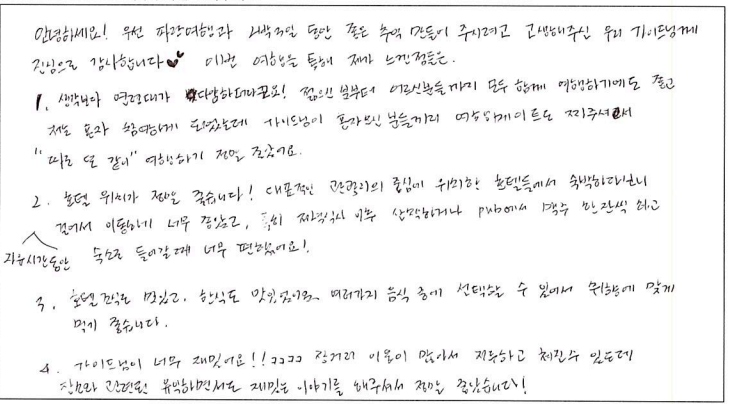 안녕하세요! 우선 파랑여행과 2박3일 동안 좋은 추억 만들어 주시려고 고생해주신 우리 가이드님께
진심으로 감사합니다♥♥ 이번 여행을 통해 제가 느낀점들은.
1. 생각보다 연령대가 다양하더라고요! 젊으신 분부터 어르신분들까지 모두 함께 여행하기에도 좋고
저는 혼자 참여하게 되었는데 가이드님이 혼자오신 분들끼리 여행메이트도 지어주셔서
"따로 또 같이" 여행하기 정말 좋았어요.
2. 호텔 위치가 정말 좋습니다! 대표적인 관광지의 중심에 위치한 호텔들에서 숙박하다보니
걸어서 이동하기 너무 좋았고, 특히 저녁식사 이후 산책하거나 pub에서 맥주 한잔씩 하고
자유시간동안 숙소로 들어갈 때 너무 편했어요!
3. 호텔 조식도 맛있고, 한식도 맛있었어요. 여러가지 음식 중에 선택할 수 있어서 취향에 맞게
먹기 좋습니다.
4. 가이드님이 너무 재밌어요!! ㅋㅋㅋㅋ 장거리 이동이 많아서 지루하고 처질수 있는데
장소와 관련된 유익하면서도 재밌는 이야기를 해주셔서 정말 좋았습니다!